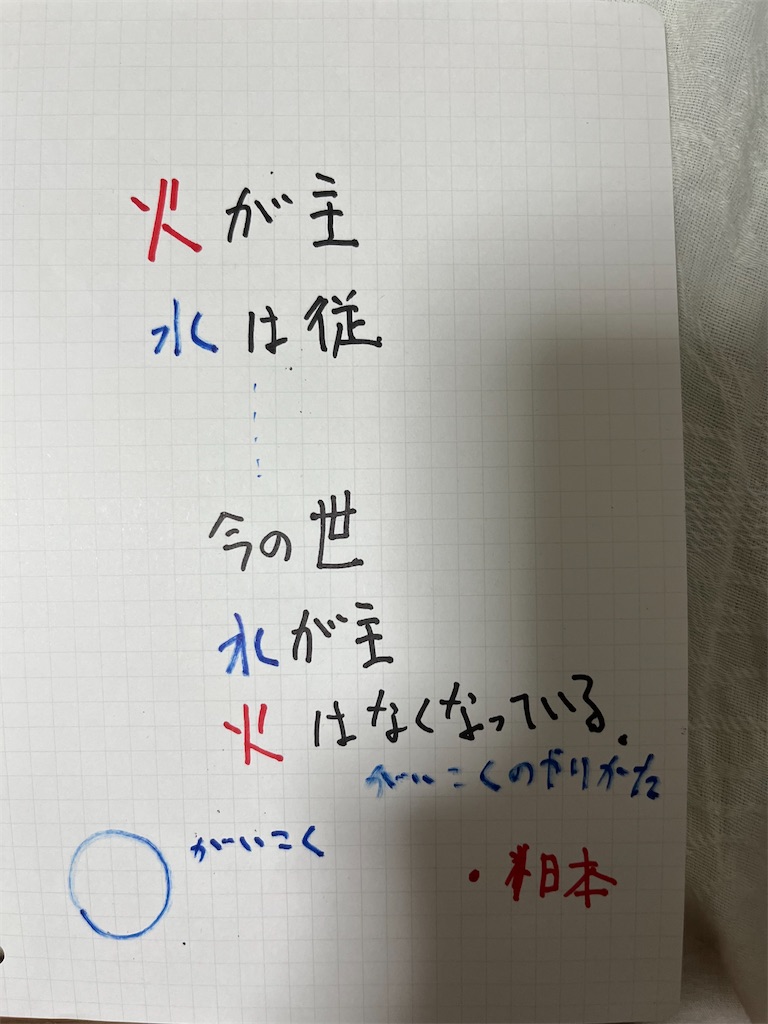 火が主
水は従
今の世
水が主
火はなくなっている.
がいこくのやりかた
がいこく
・日本